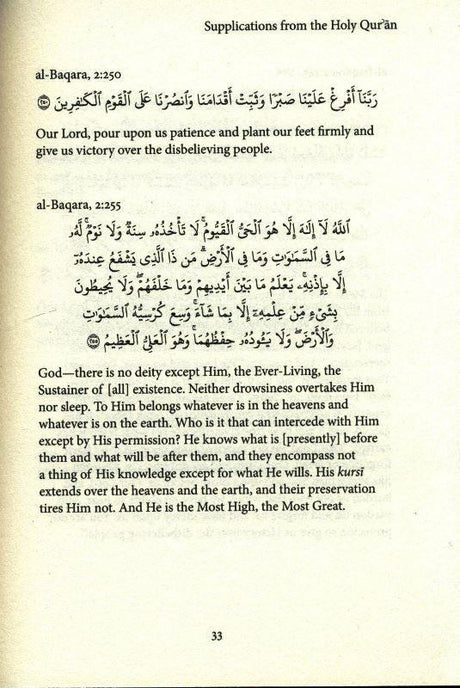 Supplications from the Holy Qur'ān
al-Baqara, 2:250
رَبَّنَآ أَفْرِغْ عَلَيْنَا صَبْرًا وَثَبِّتْ أَقْدَامَنَا وَٱنصُرْنَا عَلَى ٱلْقَوْمِ ٱلْكَـٰفِرِينَ ۝٢٥٠
Our Lord, pour upon us patience and plant our feet firmly and
give us victory over the disbelieving people.
al-Baqara, 2:255
ٱللَّهُ لَآ إِلَـٰهَ إِلَّا هُوَ ٱلْحَىُّ ٱلْقَيُّومُ ۚ لَا تَأْخُذُهُۥ سِنَةٌ وَلَا نَوْمٌ ۚ لَّهُۥ
مَا فِى ٱلسَّمَـٰوَٰتِ وَمَا فِى ٱلْأَرْضِ ۗ مَن ذَا ٱلَّذِى يَشْفَعُ عِندَهُۥٓ
إِلَّا بِإِذْنِهِۦ ۚ يَعْلَمُ مَا بَيْنَ أَيْدِيهِمْ وَمَا خَلْفَهُمْ ۖ وَلَا يُحِيطُونَ
بِشَىْءٍ مِّنْ عِلْمِهِۦٓ إِلَّا بِمَا شَآءَ ۚ وَسِعَ كُرْسِيُّهُ ٱلسَّمَـٰوَٰتِ
وَٱلْأَرْضَ ۖ وَلَا يَـُٔودُهُۥ حِفْظُهُمَا ۚ وَهُوَ ٱلْعَلِىُّ ٱلْعَظِيمُ ۝٢٥٥
God—there is no deity except Him, the Ever-Living, the
Sustainer of [all] existence. Neither drowsiness overtakes Him
nor sleep. To Him belongs whatever is in the heavens and
whatever is on the earth. Who is it that can intercede with Him
except by His permission? He knows what is [presently] before
them and what will be after them, and they encompass not
a thing of His knowledge except for what He wills. His kursī
extends over the heavens and the earth, and their preservation
tires Him not. And He is the Most High, the Most Great.
33